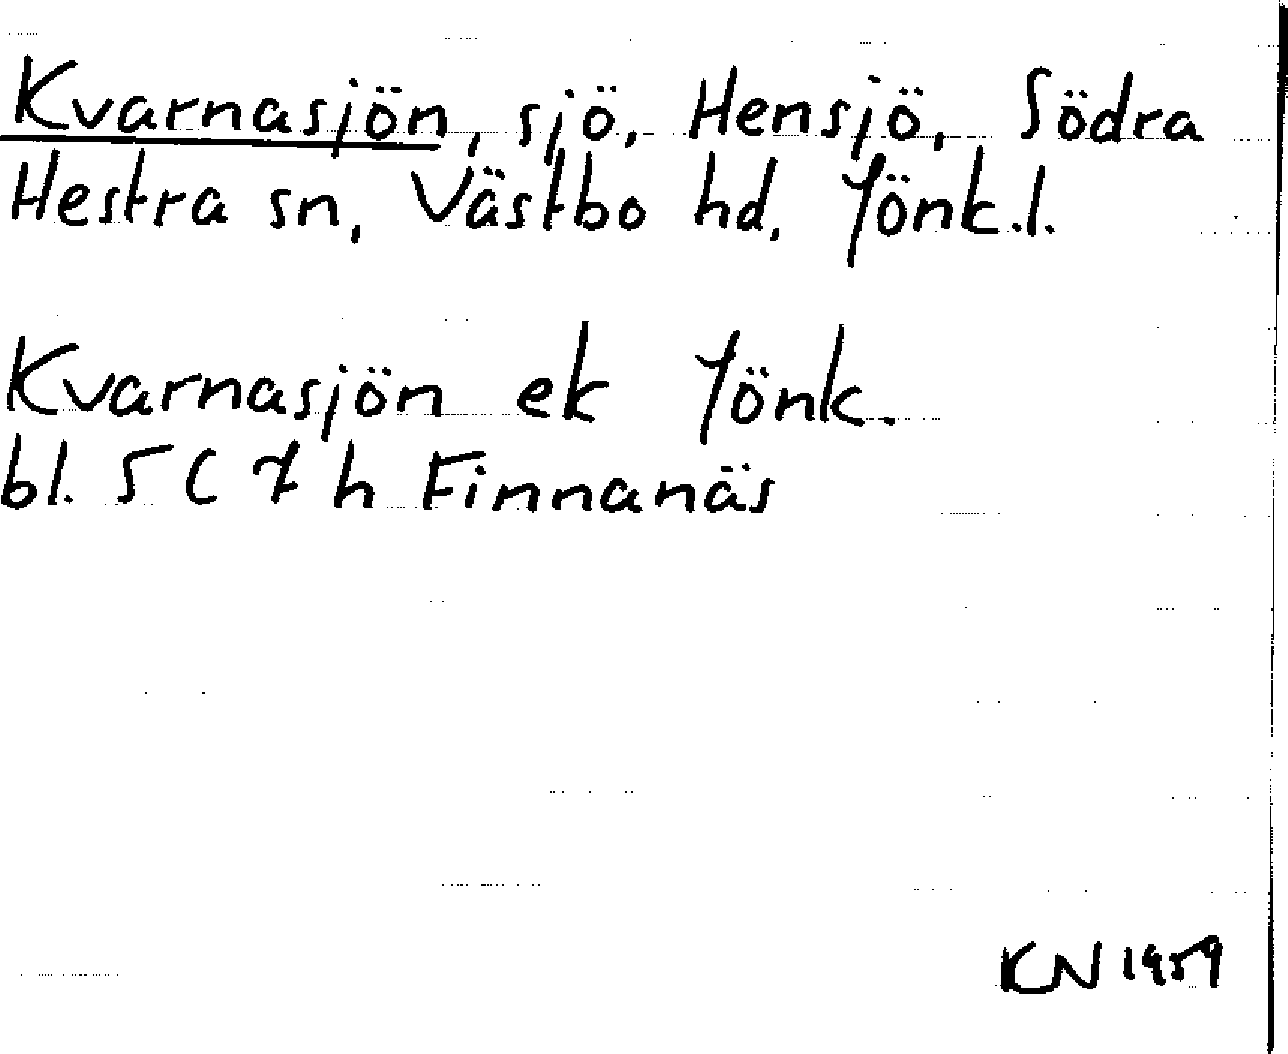 Kvarnasjön, sjö, Hensjö, Södra
Hestra sn, Västbo hd, Jönk.l.
Kvarnasjön ek Jönk.
bl. 5 C 7 h Finnanäs
KN 1959